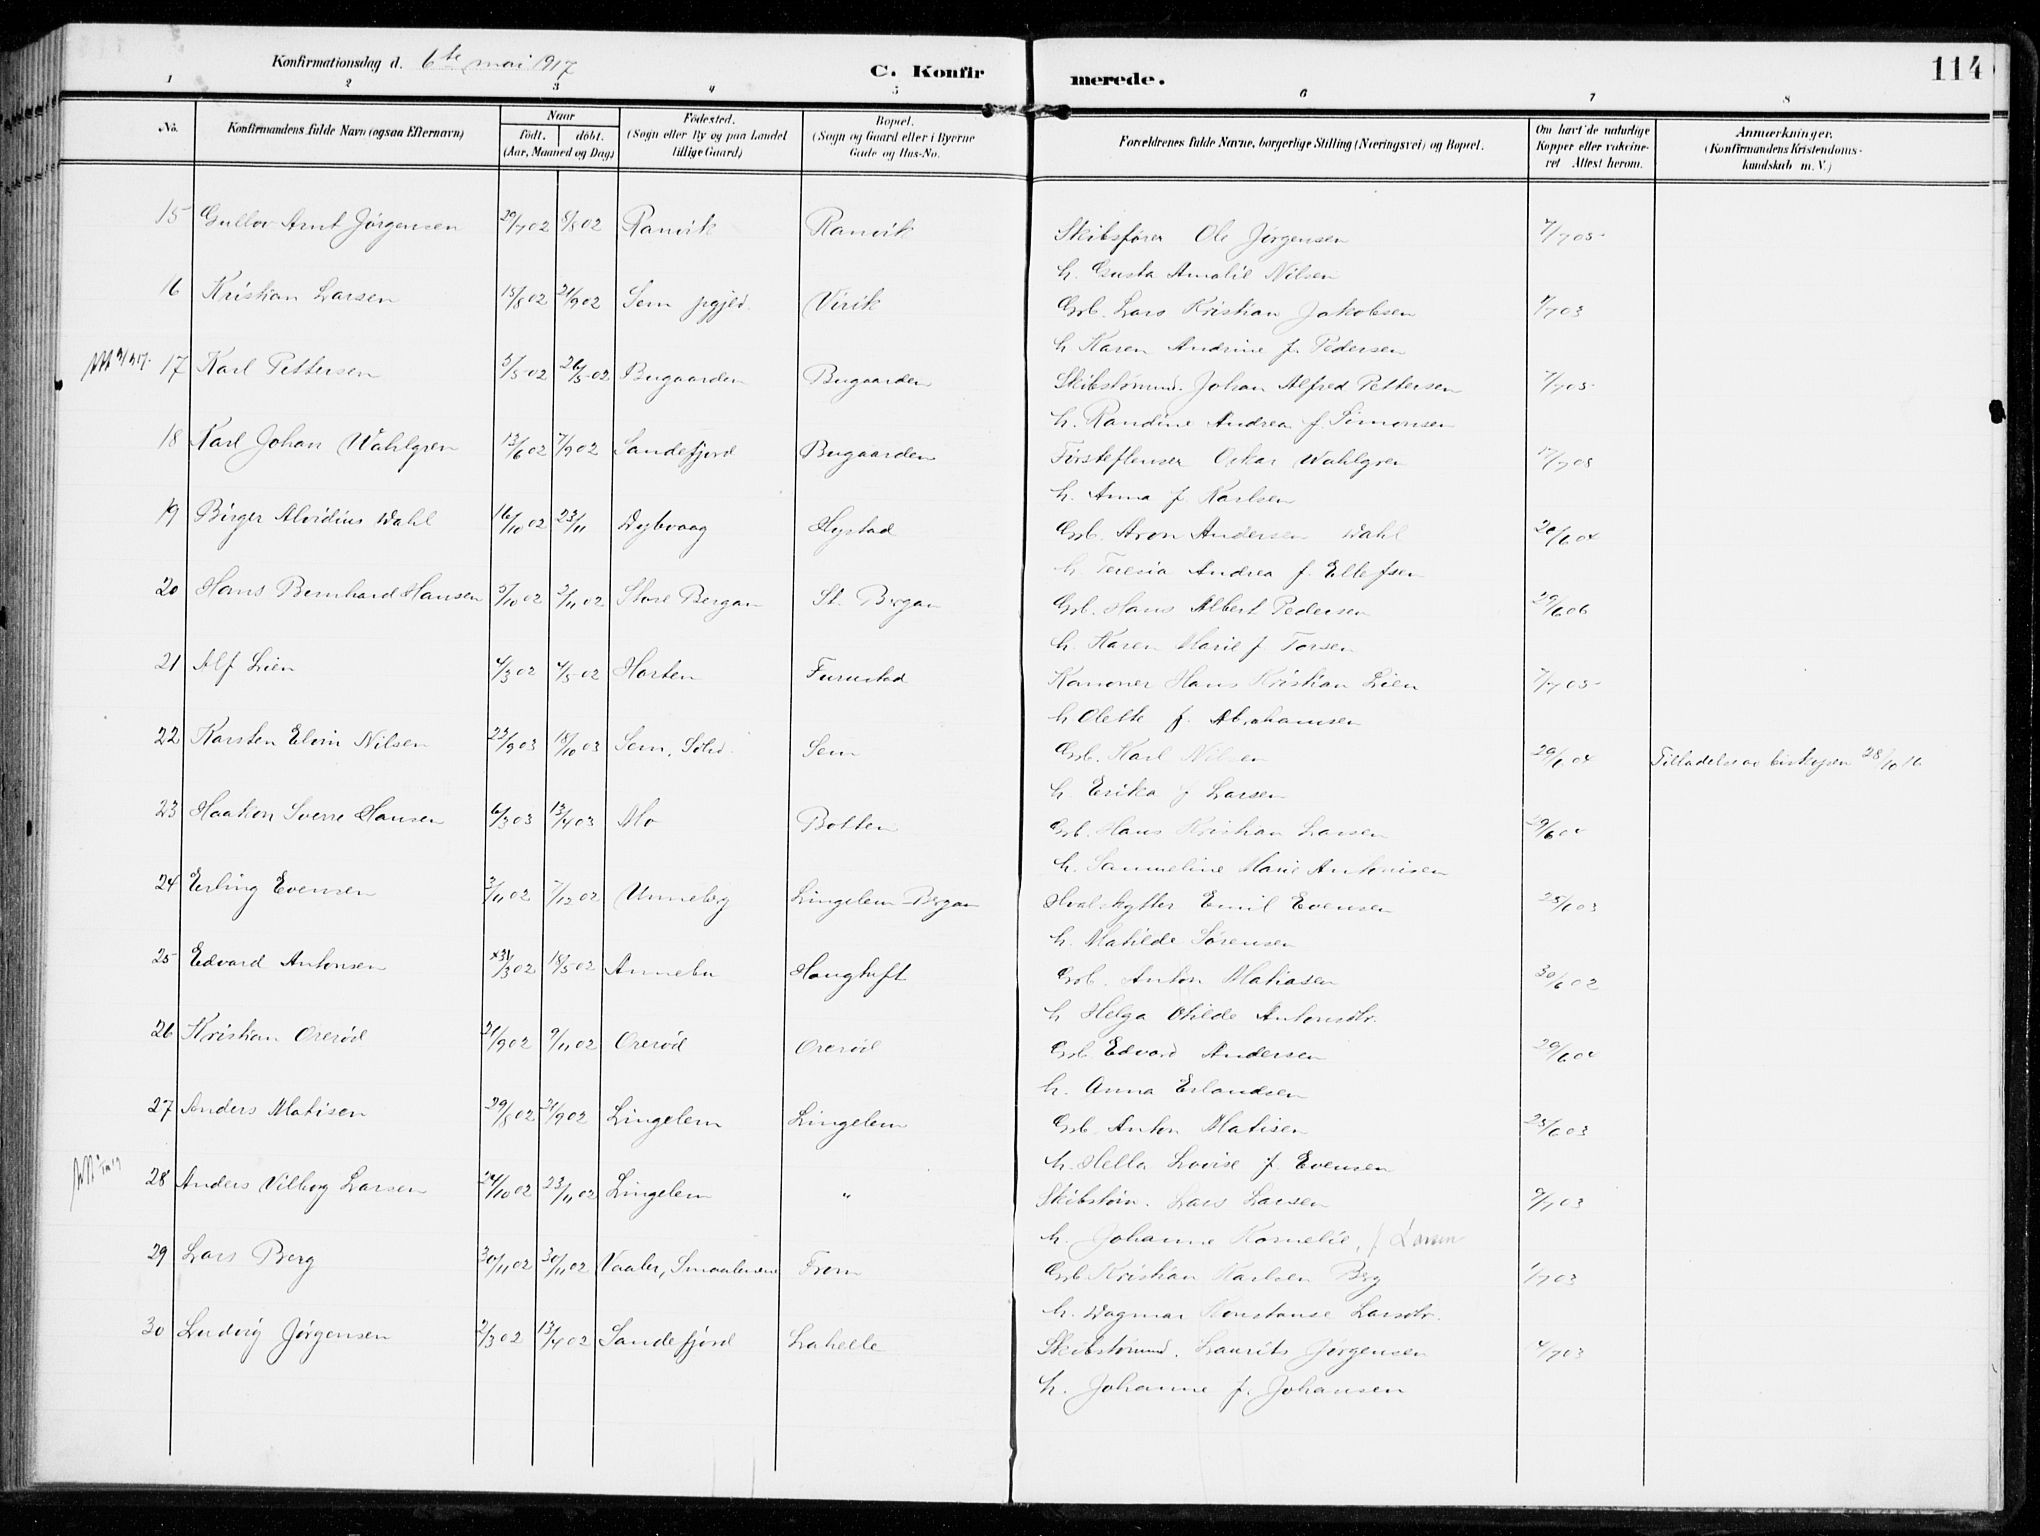 Konfirmationsdag d. 6te mai 1917
C. Konfirmerede.
114
1 2 3 4 5 6 7 8
No. Konfirmandens fulde Navn (ogsaa Efternavn) Naar født. døbt. (Aar, Maaned og Dag) Fødested. (Sogn eller By og paa Landet tillige Gaard) Bopæl. (Sogn og Gaard eller i Byerne Gade og Hus-No. Forældrenes fulde Navne, borgerlige Stilling (Næringsvei) og Bopæl. Om havt de naturlige Kopper eller vakcineret Attest herom. Anmærkninger. (Konfirmandens Kristendomskundskab m. V.)
15 Gullov Arnt Jørgensen 29/7 02 8/8 02 Ranvik Ranvik Skibsfører Ole Jørgensen 7/7 05
h. Gusta Amalie Nilsen
16 Kristian Larsen 15/8 02 21/9 02 Sem pgjeld. Virik Grb. Lars Kristian Jakobsen 7/7 03
h Karen Andrine f. Pedersen
17 Karl Pettersen 3/5 02 26/5 02 Bugaarden Bugaarden Skibstømmd. Johan Alfred Pettersen 7/7 05
h. Randine Andrea f. Simonsen
18 Karl Johan Wahlgren 13/6 02 7/9 02 Sandefjord Bugaarden Førsteflenser Oskar Wahlgren 17/7 05
h. Anna f. Karlsen
19 Birger Alvidius Wahl 16/10 02 23/11 Dybvaag Hystad Grb. Aron Andersen Wahl 20/6 04
h. Teresia Andrea f. Ellefsen
20 Hans Bernhard Hansen 5/10 02 2/11 02 Store Bergan St. Bergan Grb. Hans Albert Pedersen 29/6 06
h. Karen Marie f. Torsen
21 Alf Lien 4/3 02 4/5 02 Horten Furustad Kanoner Hans Kristian Lien 7/7 05
h Olette f. Abrahamsen
22 Karsten Elvin Nilsen 23/9 03 18/10 03 Sem, Sølv. Sem Grb. Karl Nilsen 29/6 04 Tilladelse av biskopen 28/10 16
h Erika f Larsen
23 Haakon Sverre Hansen 6/3 03 13/4 03 Mo Botten Grb. Hans Kristian Larsen 29/6 04
h. Sammeline Marie Antonisen
24 Erling Evensen 3/11 02 7/12 02 Unneberg Lingelem Bergan Hvalskytter Emil Evensen 25/6 03
h. Matilde Sørensen
25 Edvard Antonsen x31/3 02 18/5 02 Annebu Haugtuft Grb. Anton Matiasen 30/6 02
h Helga Otilde Antonsdtr.
26 Kristian Orerød 21/9 02 9/11 02 Orerød Orerød Grb. Edvard Andersen 29/6 04
h. Anna Erlandsen
27 Anders Matisen 29/8 02 21/9 02 Lingelem Lingelem Grb. Anton Matisen 25/6 03
h. Hella Lovise f. Evensen
28 Anders Vilhog Larsen 24/10 02 23/11 02 Lingelem " Skibstøm. Lars Larsen 9/7 03
h. Johanne Kornelie, f Larsen
29 Lars Berg 30/11 02 30/11 02 Vaaler, Smaalenene Frem Grb Kristian Karlsen Berg 1/7 03
h. Dagmar Konstanse Larsdtr.
30 Ludvig Jørgensen 2/3 02 13/4 02 Sandefjord Lahelle Skibstømmd. Laurits Jørgensen 4/7 03
h. Johanne f. Johansen